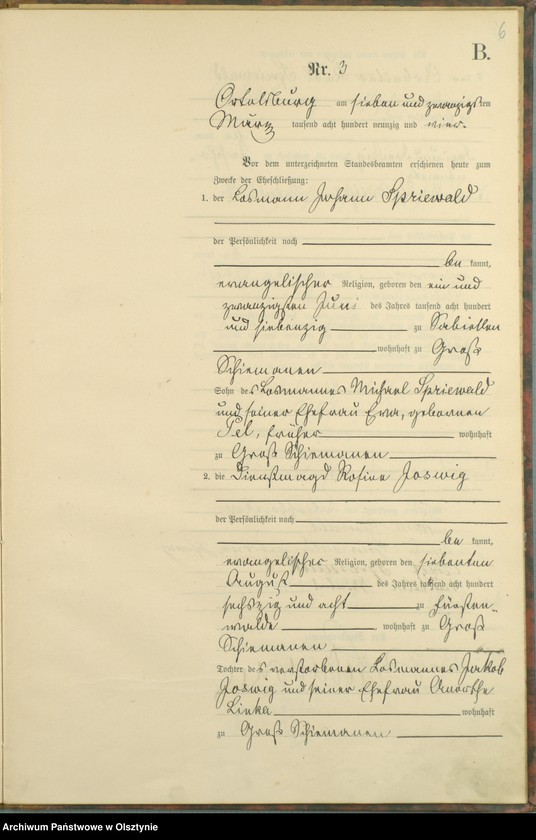 6
B.
Nr. 3
Ortelsburg am sieben und zwanzigsten
März tausend acht hundert neunzig und vier.
Vor dem unterzeichneten Standesbeamten erschienen heute zum
Zwecke der Eheschließung:
1. der Losmann Johann Spriewald
der Persönlichkeit nach
be kannt,
evangelischer Religion, geboren den ein und
zwanzigsten Juni des Jahres tausend acht hundert
und siebenzig zu Sabiellen
wohnhaft zu Groß
Schiemanen
Sohn des Losmannes Michael Spriewald
und seiner Ehefrau Eva, geborenen
früher wohnhaft
zu Groß Schiemanen
2. die Dienstmagd Rosine Joswig
der Persönlichkeit nach
be kannt,
evangelischer Religion, geboren den siebenten
August des Jahres tausend acht hundert
sechszig und acht zu Fürsten-
walde wohnhaft zu Groß
Schiemanen
Tochter des verstorbenen Losmannes Jakob
Joswig und seiner Ehefrau
Linka wohnhaft
zu Groß Schiemanen
Archiwum Państwowe w Olsztynie